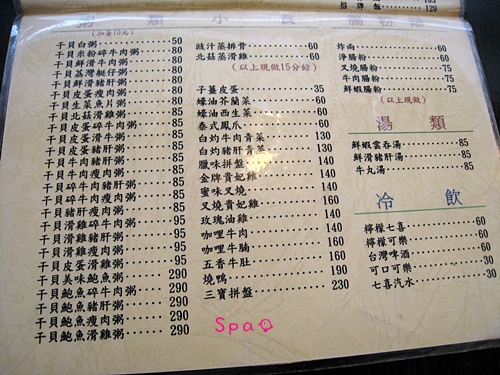 招牌飯 120
粥類 小食 腸粉類
(加蛋10元)
干貝白粥 50
干貝米粉碎牛肉粥 80
干貝鮮滑牛肉粥 80
干貝荔灣艇仔粥 80
干貝鮮滑豬肝粥 80
干貝皮蛋瘦肉粥 80
干貝生菜魚片粥 80
干貝北菇滑雞粥 85
干貝皮蛋碎牛肉粥 85
干貝皮蛋滑牛粥 85
干貝皮蛋豬肝粥 85
干貝牛肉豬肝粥 85
干貝牛肉瘦肉粥 85
干貝碎牛肉豬肝粥 85
干貝碎牛肉瘦肉粥 85
干貝豬肝瘦肉粥 85
干貝滑雞碎牛肉粥 95
干貝滑雞豬肝粥 95
干貝滑雞瘦肉粥 95
干貝皮蛋滑雞粥 95
干貝美味鮑魚粥 290
干貝鮑魚碎牛肉粥 290
干貝鮑魚豬肝粥 290
干貝鮑魚瘦肉粥 290
干貝鮑魚滑雞粥 290
豉汁蒸排骨 60
北菇蒸滑雞 60
(以上現做15分鐘)
子薑皮蛋 35
蠔油芥蘭菜 60
蠔油西生菜 60
泰式鳳爪 60
白灼牛肉青菜 130
白灼豬肝青菜 130
臘味拼盤 140
金牌貴妃雞 140
蜜味叉燒 140
叉燒貴妃雞 160
玫瑰油雞 140
咖哩牛肉 140
咖哩牛腩 140
五香牛肚 160
燒鴨 190
三寶拼盤 230
炸兩 60
淨腸粉 60
叉燒腸粉 75
牛肉腸粉 75
鮮蝦腸粉 75
(以上現做)
湯類
鮮蝦雲吞湯 85
鮮滑豬肝湯 85
牛丸湯 85
冷飲
檸檬七喜 60
檸檬可樂 60
台灣啤酒 60
可口可樂 30
七喜汽水 30
Spa